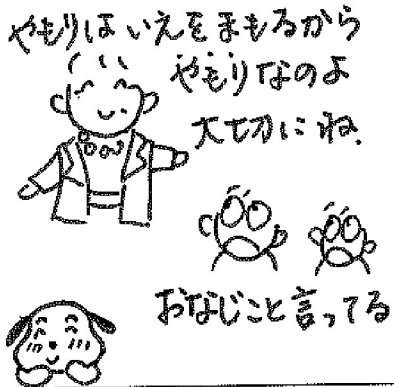 やもりはいえをまもるから
やもりなのよ
大切にね.
おなじこと言ってる